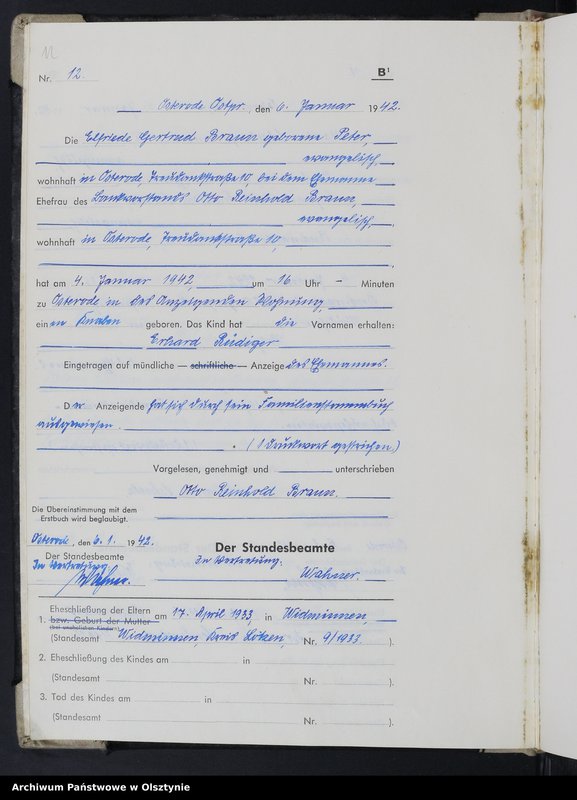 12
Nr. 12. B¹
Osterode Ostpr., den 6. Januar 1942.
Die Elfriede Gertrud Braun geborene Peter,
evangelisch,
wohnhaft in Osterode, 10, bei dem Ehemanne
Ehefrau des Otto Reinhold Braun,
evangelisch,
wohnhaft in Osterode, 10,
hat am 4. Januar 1942, um 16 Uhr – Minuten
zu Osterode in des Anzeigenden Wohnung,
einen Knaben geboren. Das Kind hat die Vornamen erhalten:
Erhard Rüdiger
Eingetragen auf mündliche — schriftliche — Anzeige des Ehemannes.
Der Anzeigende hat sich durch sein Familienstammbuch
ausgewiesen.
. (1 Druckwort gestrichen)
Vorgelesen, genehmigt und unterschrieben
Otto Reinhold Braun.
Die Übereinstimmung mit dem
Erstbuch wird beglaubigt.
Osterode, den 6.1. 1942.
Der Standesbeamte
In Vertretung:
Der Standesbeamte
In Vertretung:
Wahner.
1. Eheschließung der Eltern
bzw. Geburt der Mutter
(bei unehelichen Kindern)
am 17. April 1933, in Widminnen,
(Standesamt Widminnen, Kreis Lötzen, Nr. 9/1933. ).
2. Eheschließung des Kindes am in
(Standesamt Nr. ).
3. Tod des Kindes am in
(Standesamt Nr. ).
Archiwum Państwowe w Olsztynie